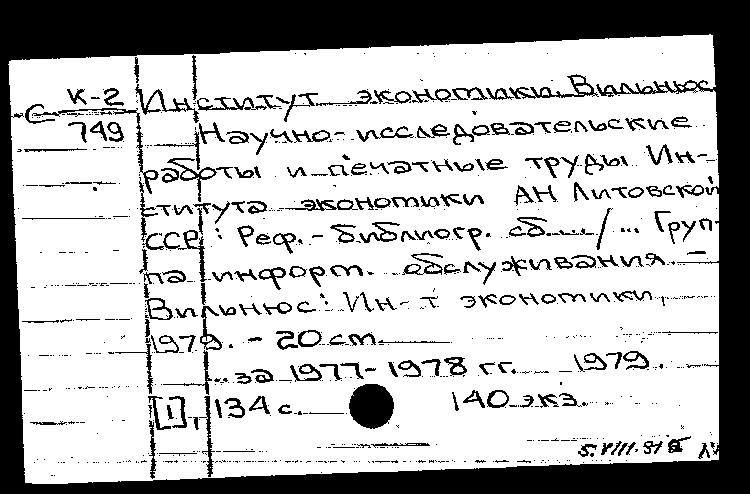 С К-2 Институт экономики. Вильнюс.
749 Научно-исследовательские
работы и печатные труды Ин-
ститута экономики АН Литовской
ССР : Реф.-библиогр. сб..... / ... Груп-
па информ. обслуживания. -
Вильнюс : Ин-т экономики,
1979. - 20 см.
... за 1977-1978 гг. 1979.
[1], 134 с. 140 экз.
5.VIII.81